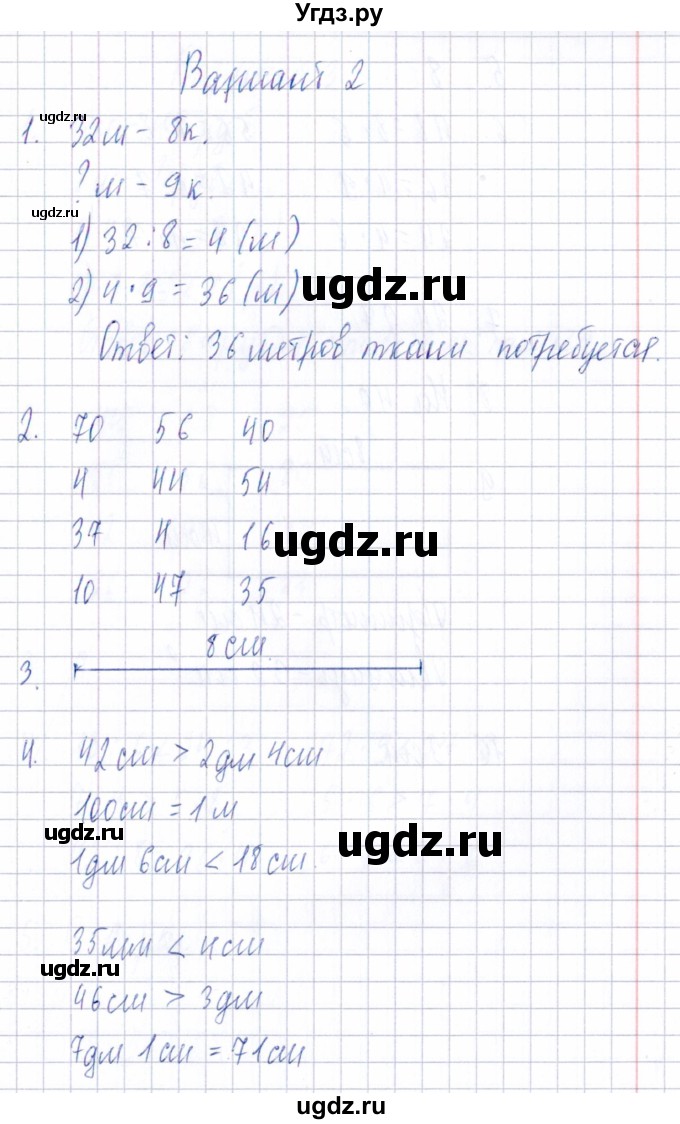 Угдз.ру
Вариант 2
ugdz.ru
1. 32м – 8к.
?м – 9к.
ugdz.ru
1) 32 : 8 = 4 (м)
2) 4 · 9 = 36 (м)
ugdz.ru
Ответ: 36 метров ткани потребуется.
2. 70 56 40
4 44 54
37 4 16
ugdz.ru
10 47 35
8 см.
3.
4. 42см > 2дм 4см
100см = 1м
ugdz.ru
ugdz.ru
1дм 6см < 18см.
35мм < 4см
ugdz.ru
46см > 3дм
7дм 1см = 71см
ugdz.ru